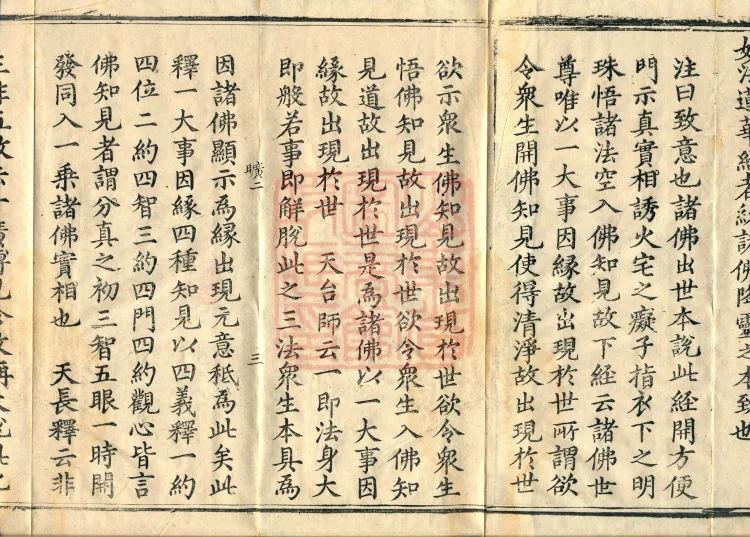 妙法蓮華經者統諸佛降靈之本致也
注曰致意也諸佛出世本說此經開方便
門示真實相誘火宅之癡子指衣下之明
珠悟諸法空入佛知見故下經云諸佛世
尊唯以一大事因緣故出現於世所謂欲
令衆生開佛知見使得清淨故出現於世
欲示衆生佛知見故出現於世欲令衆生
悟佛知見故出現於世欲令衆生入佛知
見道故出現於世是為諸佛以一大事因
緣故出現於世 天台師云一即法身大
即般若事即解脫此之三法衆生本具為
曠二 三
因諸佛顯示為緣出現元意秖為此矣此
釋一大事因緣四種知見以四義釋一約
四位二約四智三約四門四約觀心皆言
佛知見者謂分真之初三智五眼一時開
發同入一乘諸佛實相也 天長釋云非